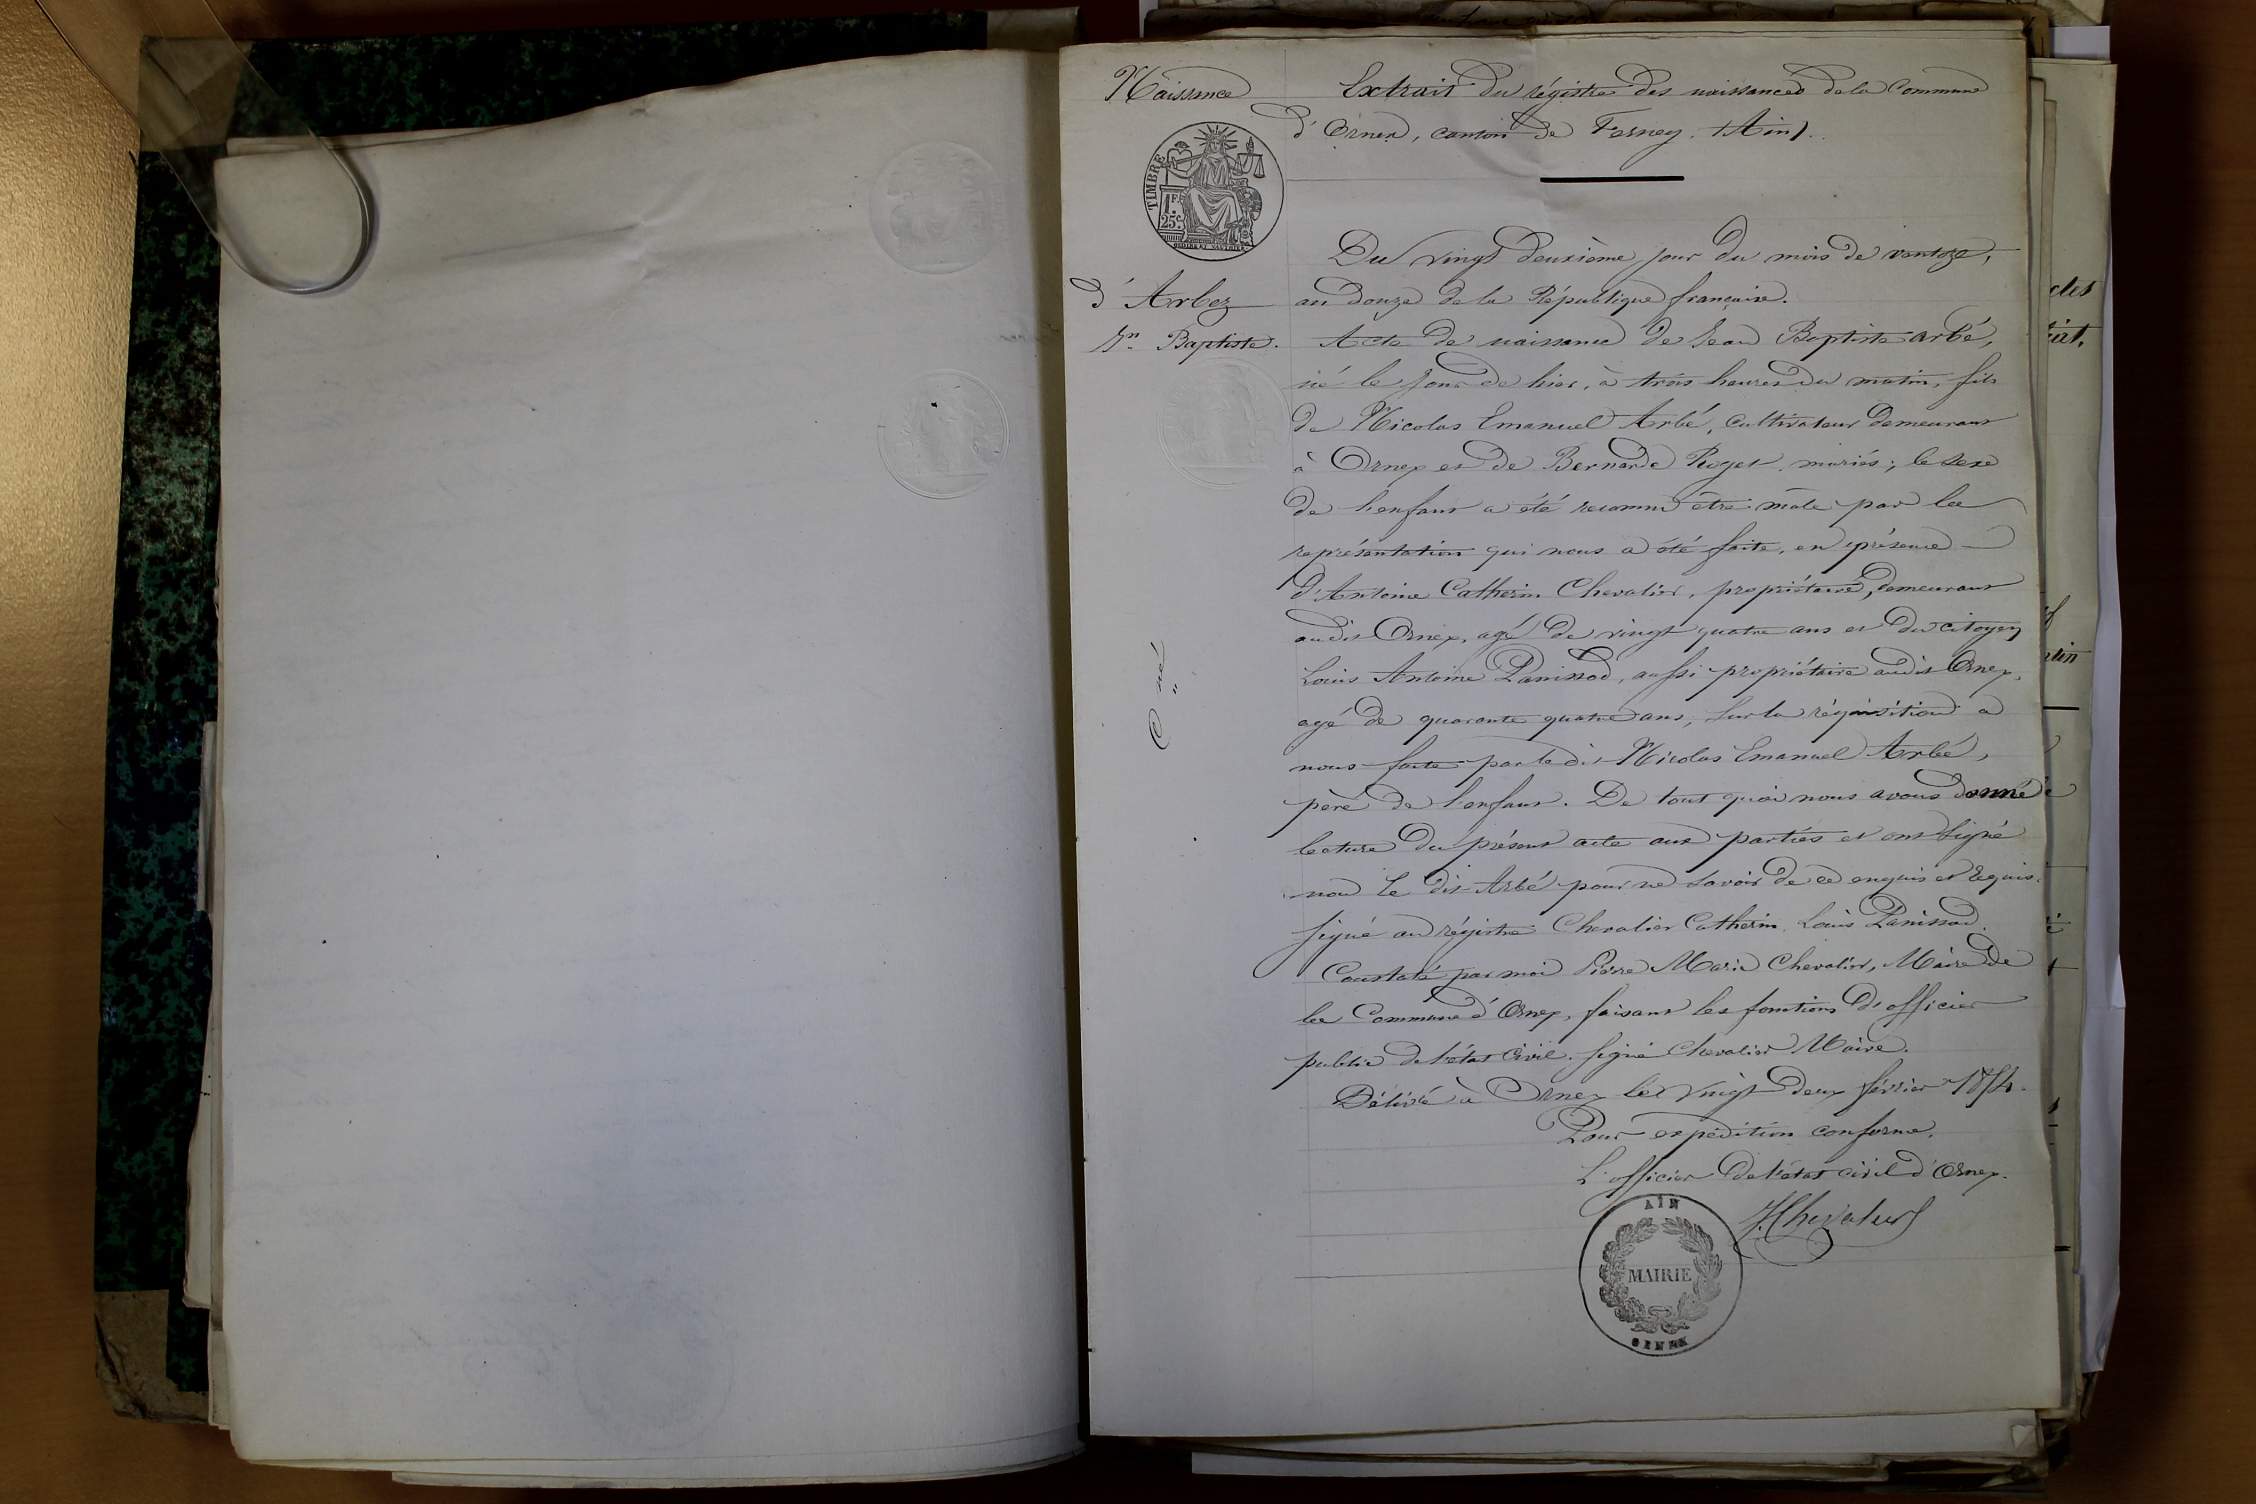 Naissance
Extrait du régistre des naissances de la Commune
d'Ornex, canton de Ferney (Ain).
TIMBRE
1F.
25c.
Du vingt deuxième jour du mois de ventoze,
d'Arbez
an douze de la République française.
Jn. Baptiste.
Acte de naissance de Jean Baptiste Arbé,
né le jour de hier, à trois heures du matin, fils
de Nicolas Emanuel Arbé, cultivateur demeurant
à Ornex et de Bernarde Roget mariés; le sexe
de l'enfant a été reconnu être mâle par la
représentation qui nous a été faite, en présence
d'Antoine Catherin Chevalier, propriétaire, demeurant
audit Ornex, agé de vingt quatre ans et du citoyen
Louis Antoine Panissod, aussi propriétaire audit Ornex,
agé de quarante quatre ans, sur la réquisition a
nous faite par le dit Nicolas Emanuel Arbé,
père de l'enfant. De tout quoi nous avons donné
lecture du présent acte aux parties et ont signé
non le dit Arbé pour ne savoir de ce enquis et requis.
signé au régistre Chevalier Catherin, Louis Panissod.
Constaté par moi Pierre Marie Chevalier, Maire de
la Commune d'Ornex, faisant les fonctions d'officier
public de l'état civil. signé Chevalier Maire.
Délivré à Ornex le vingt deux février 1874.
Pour expédition conforme.
L'officier de l'état civil d'Ornex.
Chevalier
AIN
MAIRIE
ORNEX